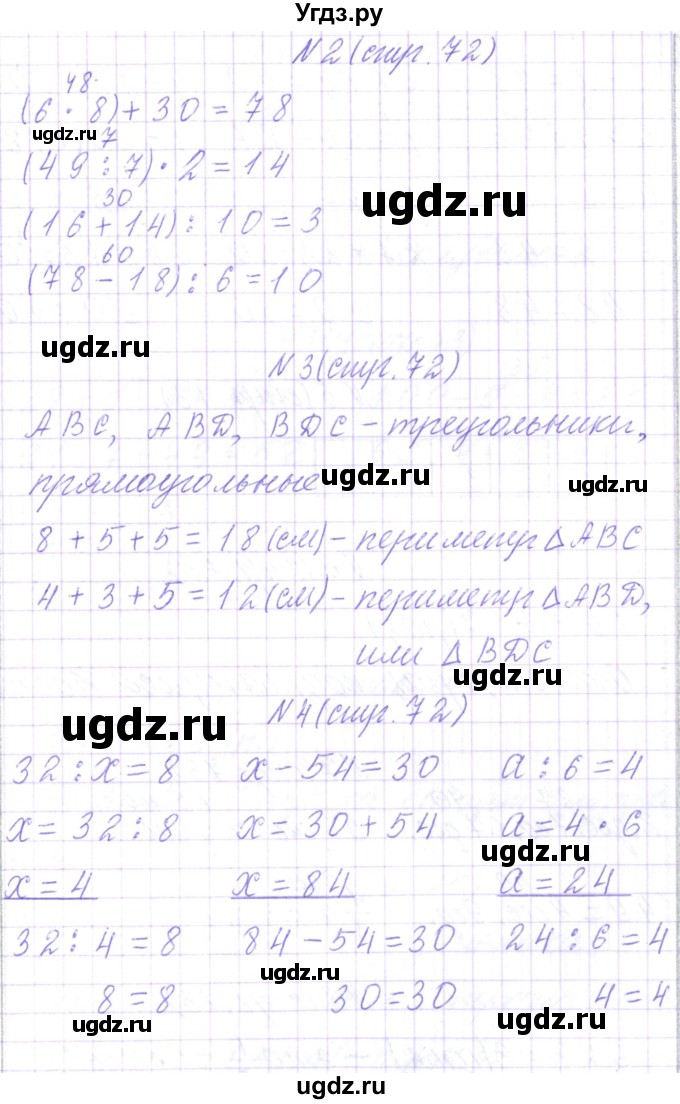 Угдз.ру
N2 (стр. 72)
48
(6 · 8) + 30 = 78
ugdz.ru
7
(49 : 7) · 2 = 14
ugdz.ru
30
(16 + 14) : 10 = 3
60
(78 - 18) : 6 = 10
ugdz.ru
N3 (стр. 72)
ABC, ABD, BDC - треугольники,
прямоугольные
ugdz.ru
ugdz.ru
8 + 5 + 5 = 18 (см) - периметр △ABC
4 + 3 + 5 = 12 (см) - периметр △ABD,
или △BDC
ugdz.ru
N4 (стр. 72)
ugdz.ru
32 : x = 8 x - 54 = 30 a : 6 = 4
x = 32 : 8 x = 30 + 54 a = 4 · 6
ugdz.ru
x = 4 x = 84 a = 24
32 : 4 = 8 84 - 54 = 30 24 : 6 = 4
ugdz.ru
8 = 8 30 = 30 4 = 4
ugdz.ru
ugdz.ru
ugdz.ru